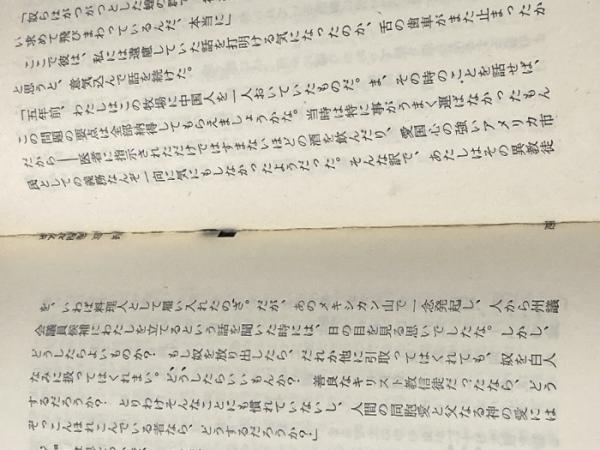 「奴らはがつがつとした
い求めて飛びまわっているんだ、本当に」
ここで彼は、私には遠慮していた話を打明ける気になったのか、舌の歯車がまた止まったか
と思うと、意気込んで話を続けた。
「五年前、わたしはこの牧場に中国人を一人おいていたものだ。ま、その時のことを話せば、
この問題の要点は全部納得してもらえましょうかな。当時は特に事がうまく運ばなかったもん
だから――医者に指示されただけではすまないほどの酒を飲んだり、愛国心の強いアメリカ市
民としての義務なんぞ一向に気にもしなかったようだった。そんな訳で、あたしはその異教徒
を、いわば料理人として雇い入れたのさ。だが、あのメキシカン山で一念発起し、人から州議
会議員候補にわたしを立てるという話を聞いた時には、日の目を見る思いでしたな。しかし、
どうしたらよいものか？もし奴を放り出したら、だれか他に引取ってはくれても、奴を白人
なみに扱ってはくれまい。どうしたらいいもんか？善良なキリスト教信徒だったなら、どう
するだろうか？とりわけそんなことにも慣れていないし、人間の同胞愛と父なる神の愛には
ぞっこんほれこんでいる者なら、どうするだろうか？」